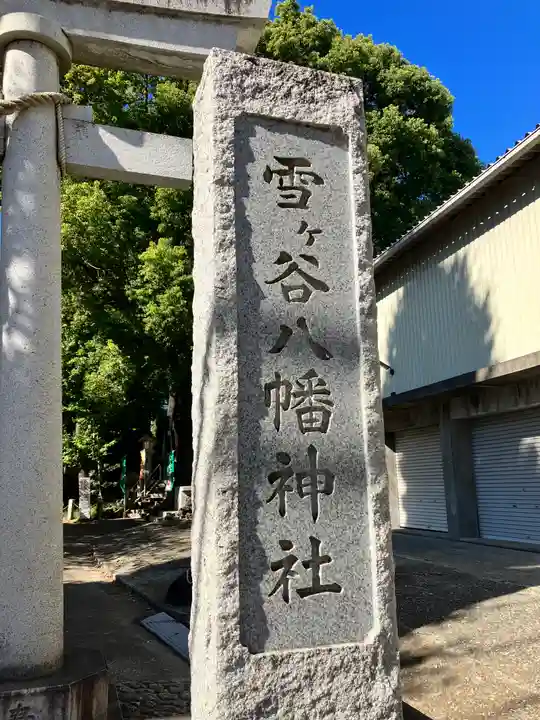 雪ヶ谷八幡神社